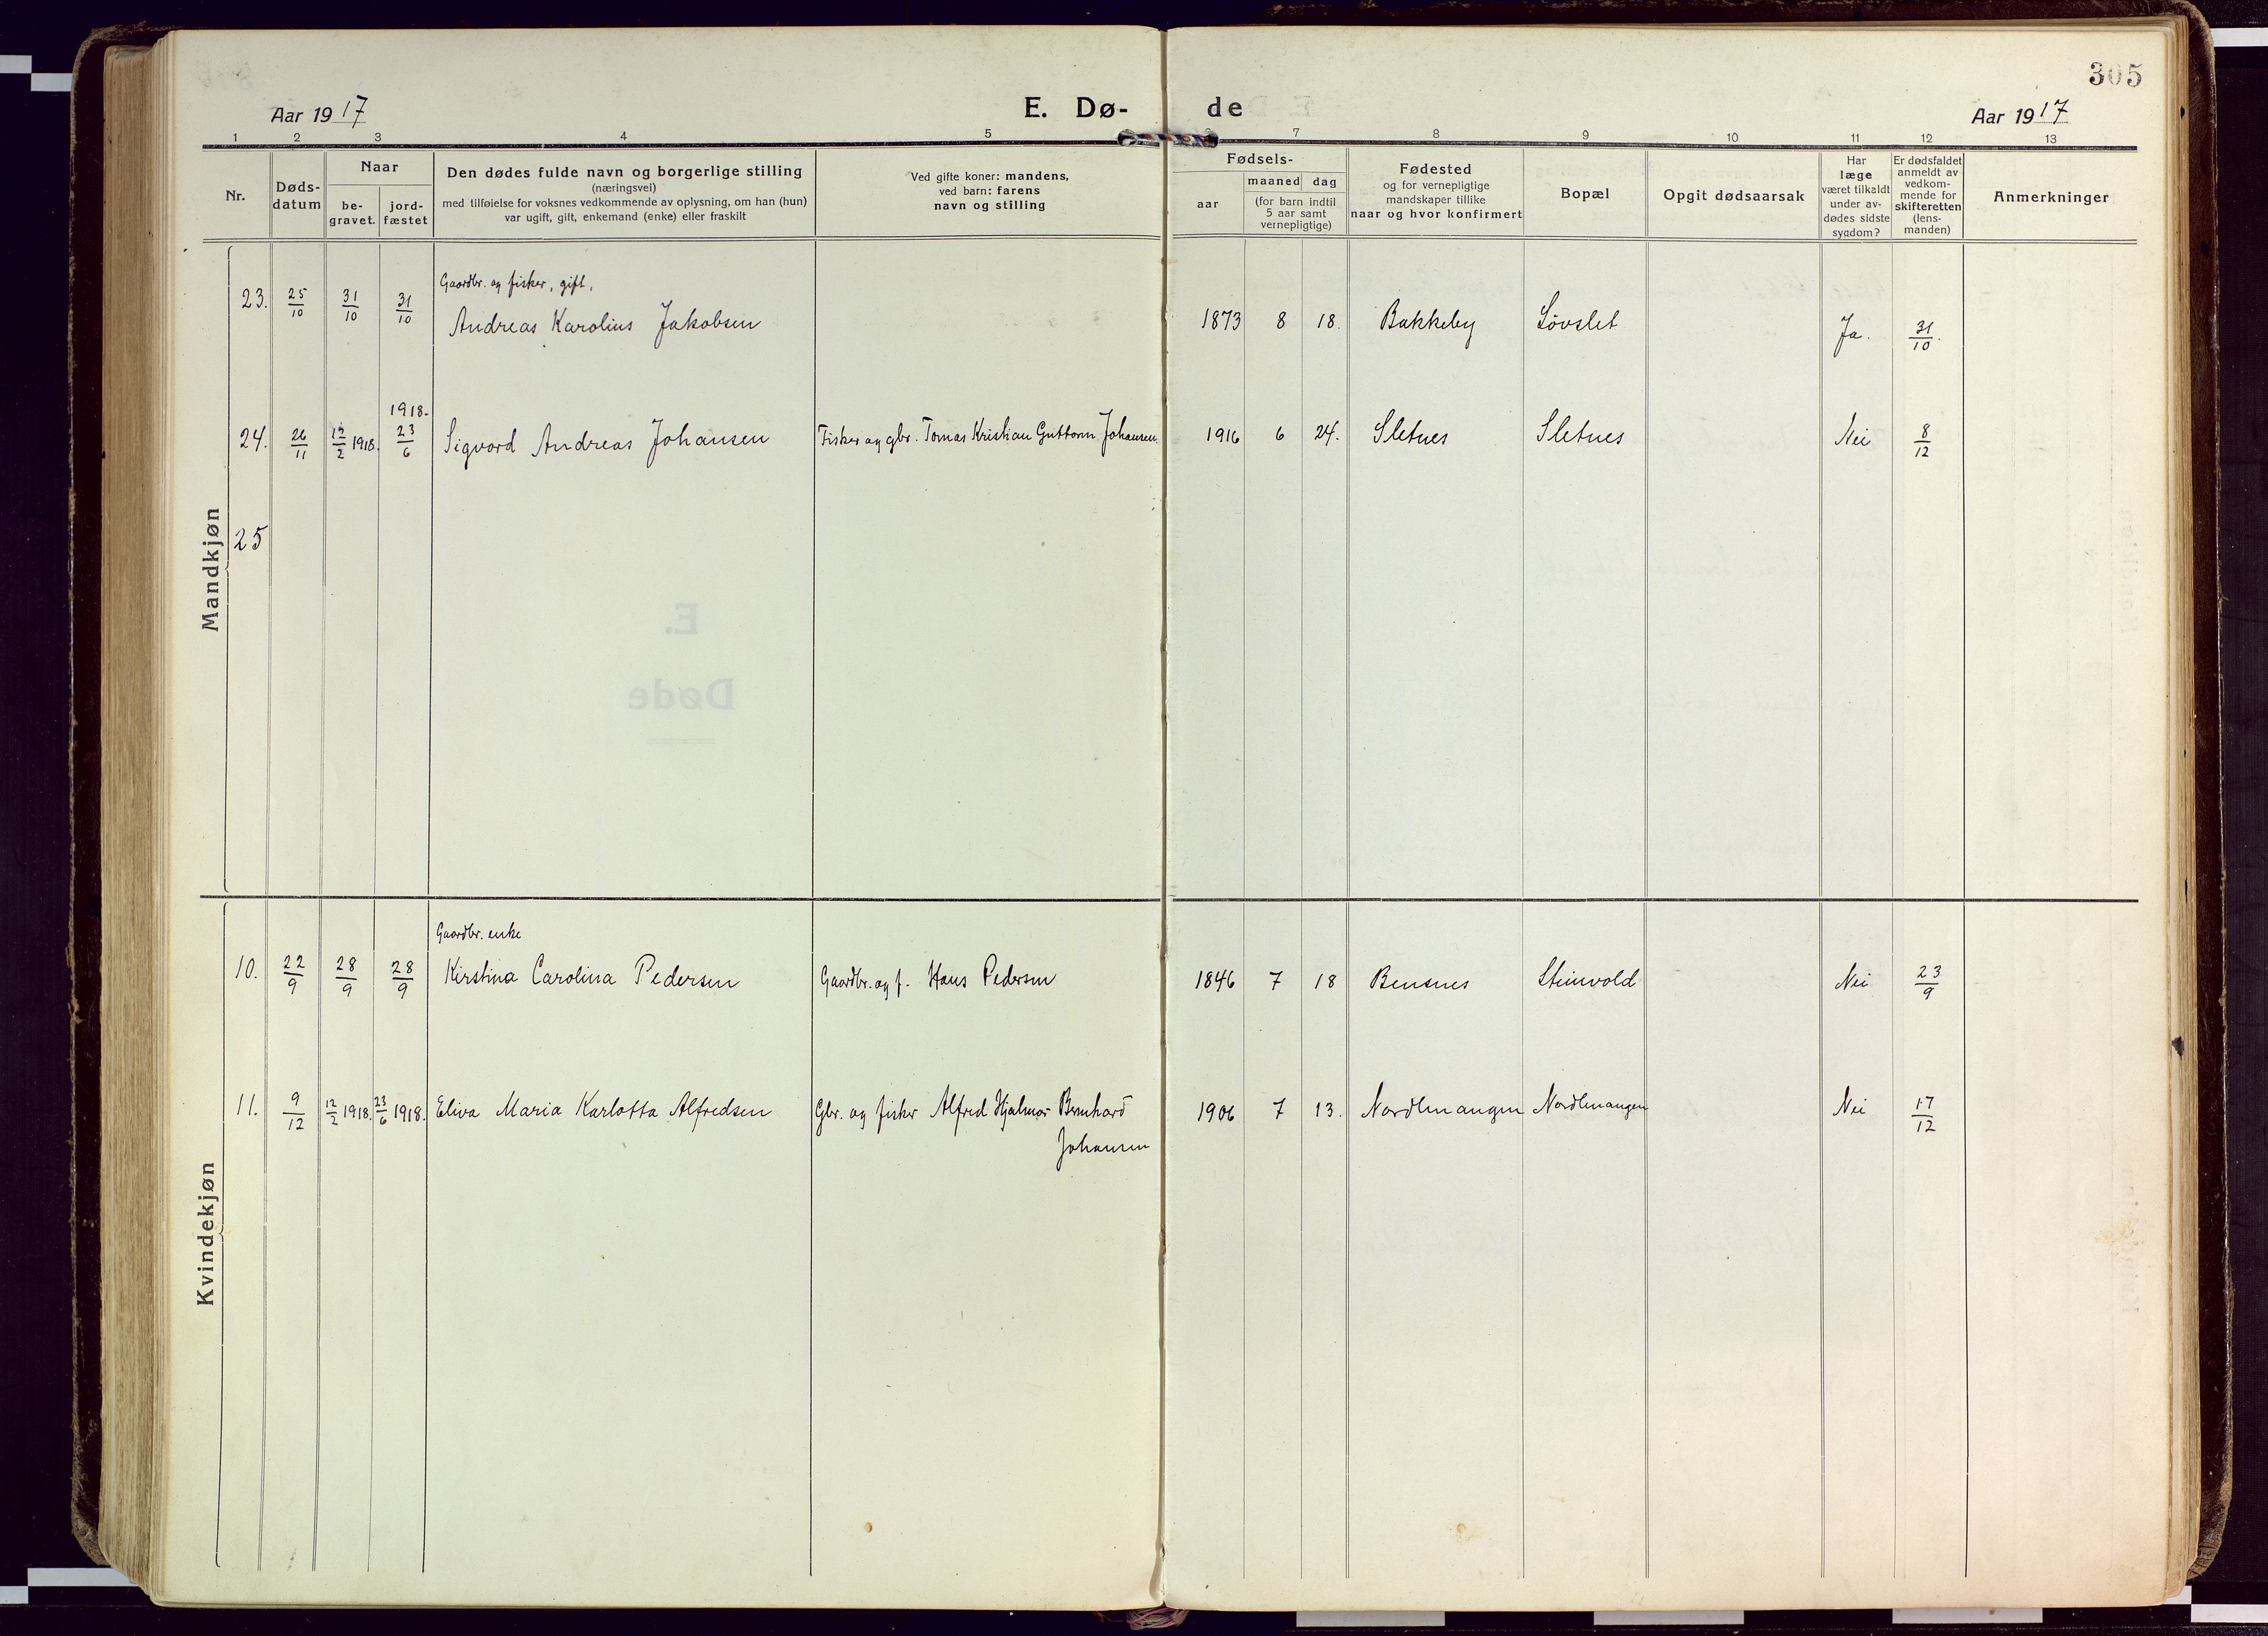 305
Aar 1917
E. Dø-
de
Aar 1917
1 2 3 4 5 6 7 8 9 10 11 12 13
Nr.
Døds-
datum
Naar
be-
gravet.
jord-
fæstet
Den dødes fulde navn og borgerlige stilling
(næringsvei)
med tilføielse for voksnes vedkommende av oplysning, om han (hun)
var ugift, gift, enkemand (enke) eller fraskilt
Ved gifte koner: mandens,
ved barn: farens
navn og stilling
Fødsels-
aar
maaned dag
(for barn indtil
5 aar samt
vernepligtige)
Fødested
og for vernepligtige
mandskaper tillike
naar og hvor konfirmert
Bopæl
Opgit dødsaarsak
Har
læge
været tilkaldt
under av-
dødes sidste
sygdom?
Er dødsfaldet
anmeldt av
vedkom-
mende for
skifteretten
(lens-
manden)
Anmerkninger
Mandkjøn
Gaardbr. og fisker, gift,
23. 25/10 31/10 31/10 Andreas Karolius Jakobsen 1873 8 18. Bakkeby Lövslet Ja. 31/10.
1918.
24. 26/11 12/2 1918. 23/6 Sigvard Andreas Johansen Fisker og gbr. Tomas Kristian Guttorm Johansen 1916 6 24. Sletnes Sletnes Nei 8/12
25
E.
Døde
Kvindekjøn
Gaardbr. enke
10. 22/9 28/9 28/9 Kirstina Carolina Pedersen Gaardbr. og f. Hans Pedersen 1846 7 18 Bensnes Steinvold Nei 23/9
11. 9/12 12/2 1918. 23/6 1918. Eliva Maria Karlotta Alfredsen Gbr. og fisker Alfred Hjalmar Bernhard 1906 7 13. Nordlenangen Nordlenangen Nei 17/12
Johansen